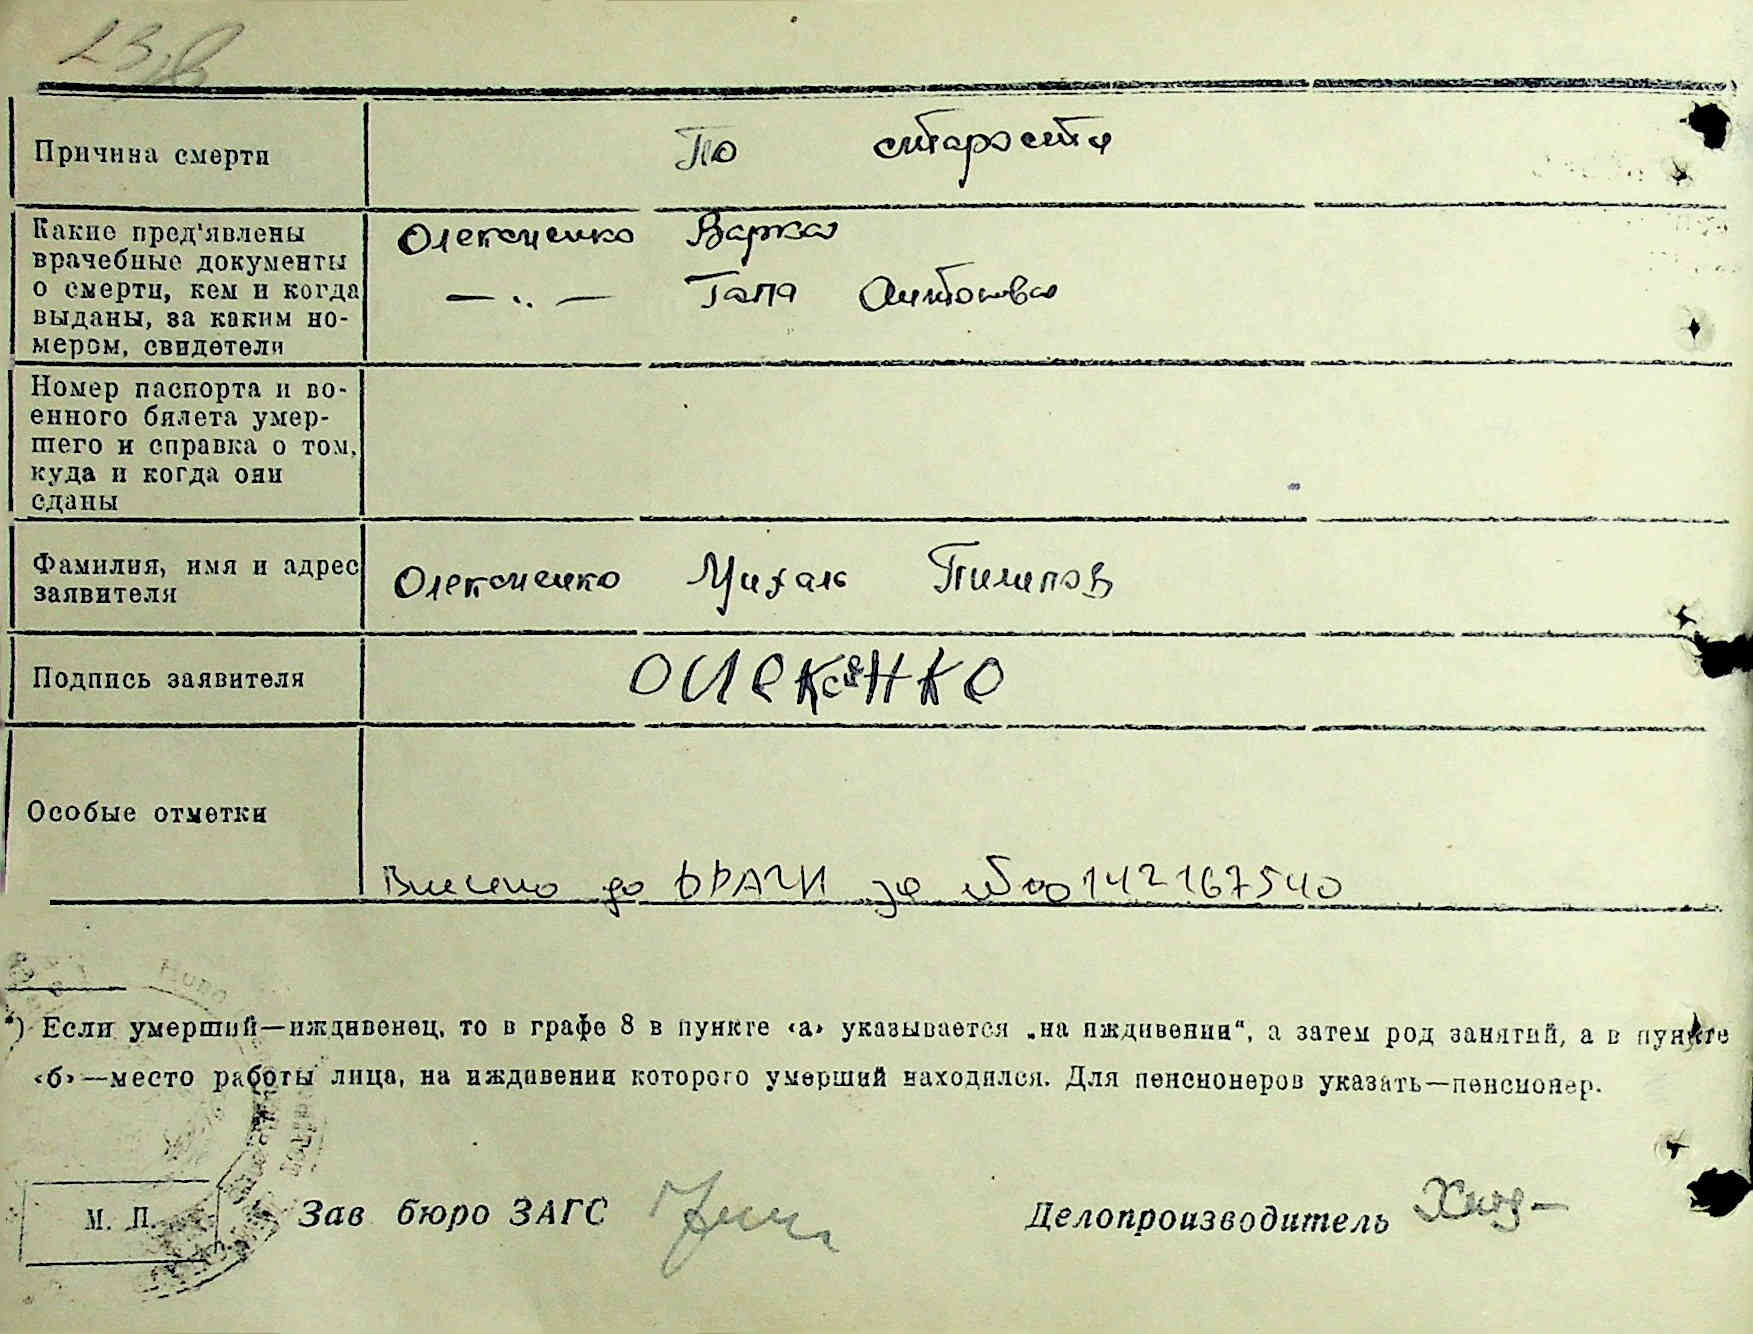 Причина смерти
По старости
Какие пред'явлены
врачебные документы
о смерти, кем и когда
выданы, за каким но-
мером, свидетели
Олексиенко Варка
— „ — Гапа Антонова
Номер паспорта и во-
енного билета умер-
шего и справка о том,
куда и когда они
сданы
Фамилия, имя и адрес
заявителя
Олексиенко Михаль Пилипов
Подпись заявителя
Особые отметки
Внесено до ДРАЦС за № 00142167540
*) Если умерший—иждивенец, то в графе 8 в пункте «а» указывается „на иждивении“, а затем род занятий, а в пункте
«б»—место работы лица, на иждивении которого умерший находился. Для пенсионеров указать—пенсионер.
М. П.
Зав бюро ЗАГС
Делопроизводитель